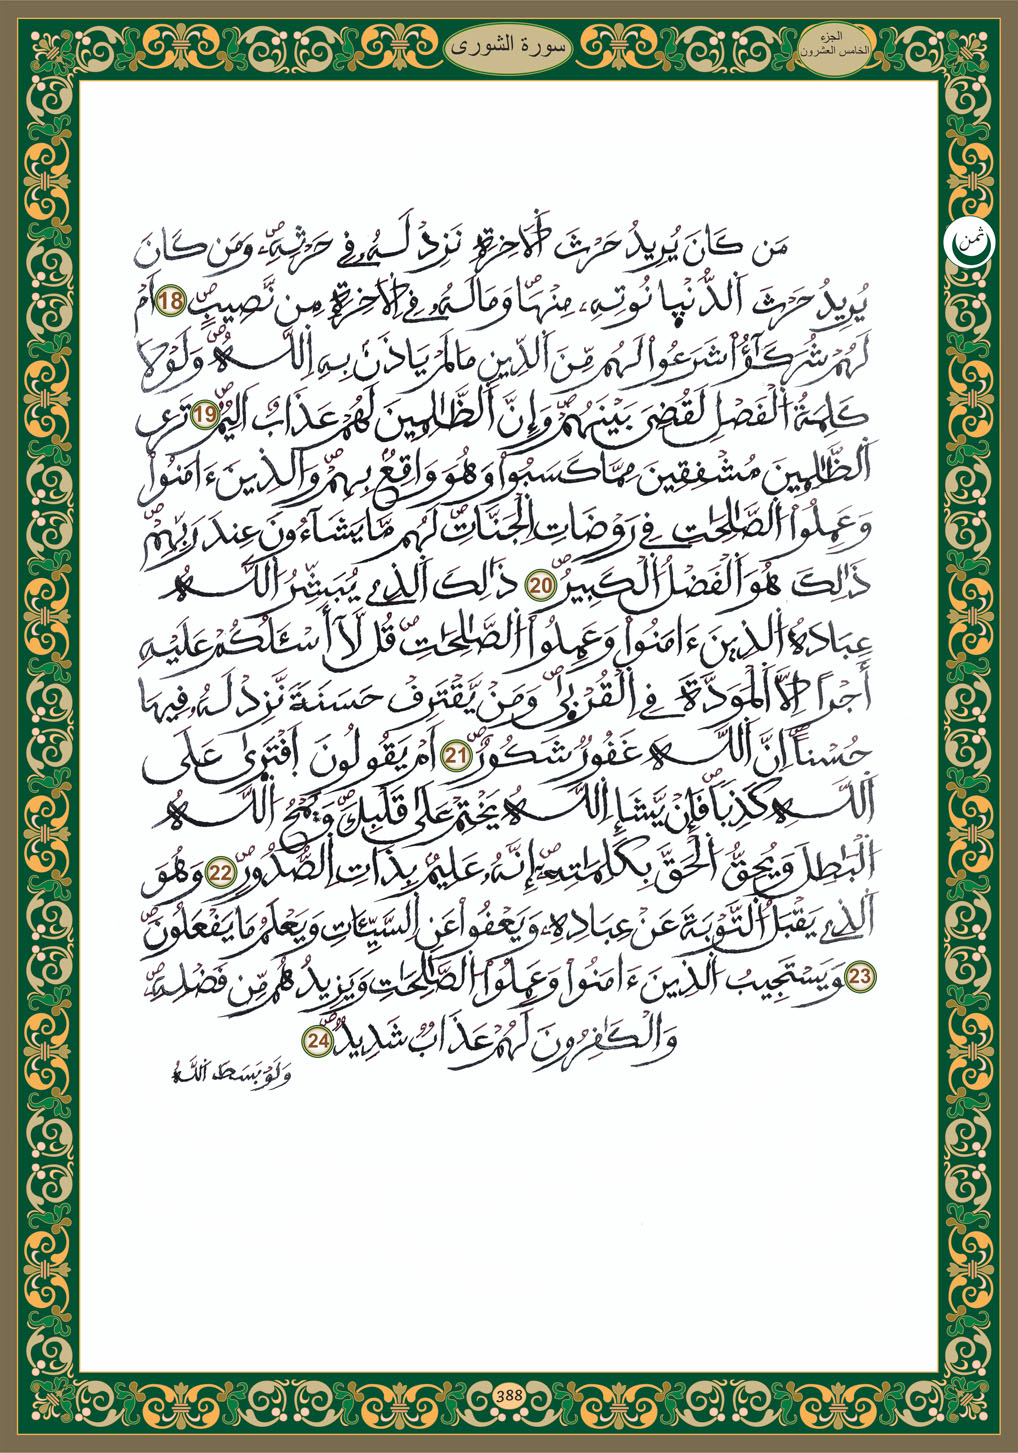 الجزء
الخامس العشرون
سورة الشورى
ثمن
مَن كَانَ يُرِيدُ حَرْثَ اَلَاخِرَةِ نَزِدْ لَهُۥ فِے حَرْثِهِۦ وَمَن كَانَ
يُرِيدُ حَرْثَ اَلدُّنْيَا نُوتِهِۦ مِنْهَا وَمَا لَهُۥ فِے اِلَاخِرَةِ مِن نَّصِيبٍ 18 اَمْ
لَهُمْ شُرَكَٰٓؤُاْ شَرَعُواْ لَهُم مِّنَ اَلدِّينِ مَا لَمْ يَاذَنۢ بِهِ اِللَّهُ وَلَوْلَا
كَلِمَةُ اُلْفَصْلِ لَقُضِىَ بَيْنَهُمْ وَإِنَّ اَلظَّٰلِمِينَ لَهُمْ عَذَابٌ اَلِيمٌ 19 تَرَى
اَلظَّٰلِمِينَ مُشْفِقِينَ مِمَّا كَسَبُواْ وَهُوَ وَاقِعٌۢ بِهِمْ وَالذِينَ ءَامَنُواْ
وَعَمِلُواْ اُلصَّٰلِحَٰتِ فِے رَوْضَاتِ اِلْجَنَّاتِ لَهُم مَّا يَشَآءُونَ عِندَ رَبِّهِمْ
ذَٰلِكَ هُوَ اَلْفَضْلُ اُلْكَبِيرُ 20 ذَٰلِكَ اَلذِے يُبَشِّرُ اُللَّهُ
عِبَادَهُ اُلذِينَ ءَامَنُواْ وَعَمِلُواْ اُلصَّٰلِحَٰتِ قُل لَّآ أَسْـَٔلُكُمْ عَلَيْهِ
أَجْراً اِلَّا اَلْمَوَدَّةَ فِے اِلْقُرْبَىٰ وَمَنْ يَّقْتَرِفْ حَسَنَةً نَّزِدْ لَهُۥ فِيهَا
حُسْناً اِنَّ اَللَّهَ غَفُورٌ شَكُورٌ 21 اَمْ يَقُولُونَ اَفْتَرَىٰ عَلَى
اَللَّهِ كَذِباً فَإِنْ يَّشَإِ اِللَّهُ يَخْتِمْ عَلَىٰ قَلْبِكَ وَيَمْحُ اُللَّهُ
اُلْبَٰطِلَ وَيُحِقُّ اُلْحَقَّ بِكَلِمَٰتِهِۦٓ إِنَّهُۥ عَلِيمٌۢ بِذَاتِ اِلصُّدُورِ 22 وَهُوَ
اَلذِے يَقْبَلُ اُلتَّوْبَةَ عَنْ عِبَادِهِۦ وَيَعْفُواْ عَنِ اِلسَّيِّـَٔاتِ وَيَعْلَمُ مَا يَفْعَلُونَ
23 وَيَسْتَجِيبُ اُلذِينَ ءَامَنُواْ وَعَمِلُواْ اُلصَّٰلِحَٰتِ وَيَزِيدُهُم مِّن فَضْلِهِۦ
وَالْكَٰفِرُونَ لَهُمْ عَذَابٌ شَدِيدٌ 24
وَلَوْ بَسَطَ اَللَّهُ
388